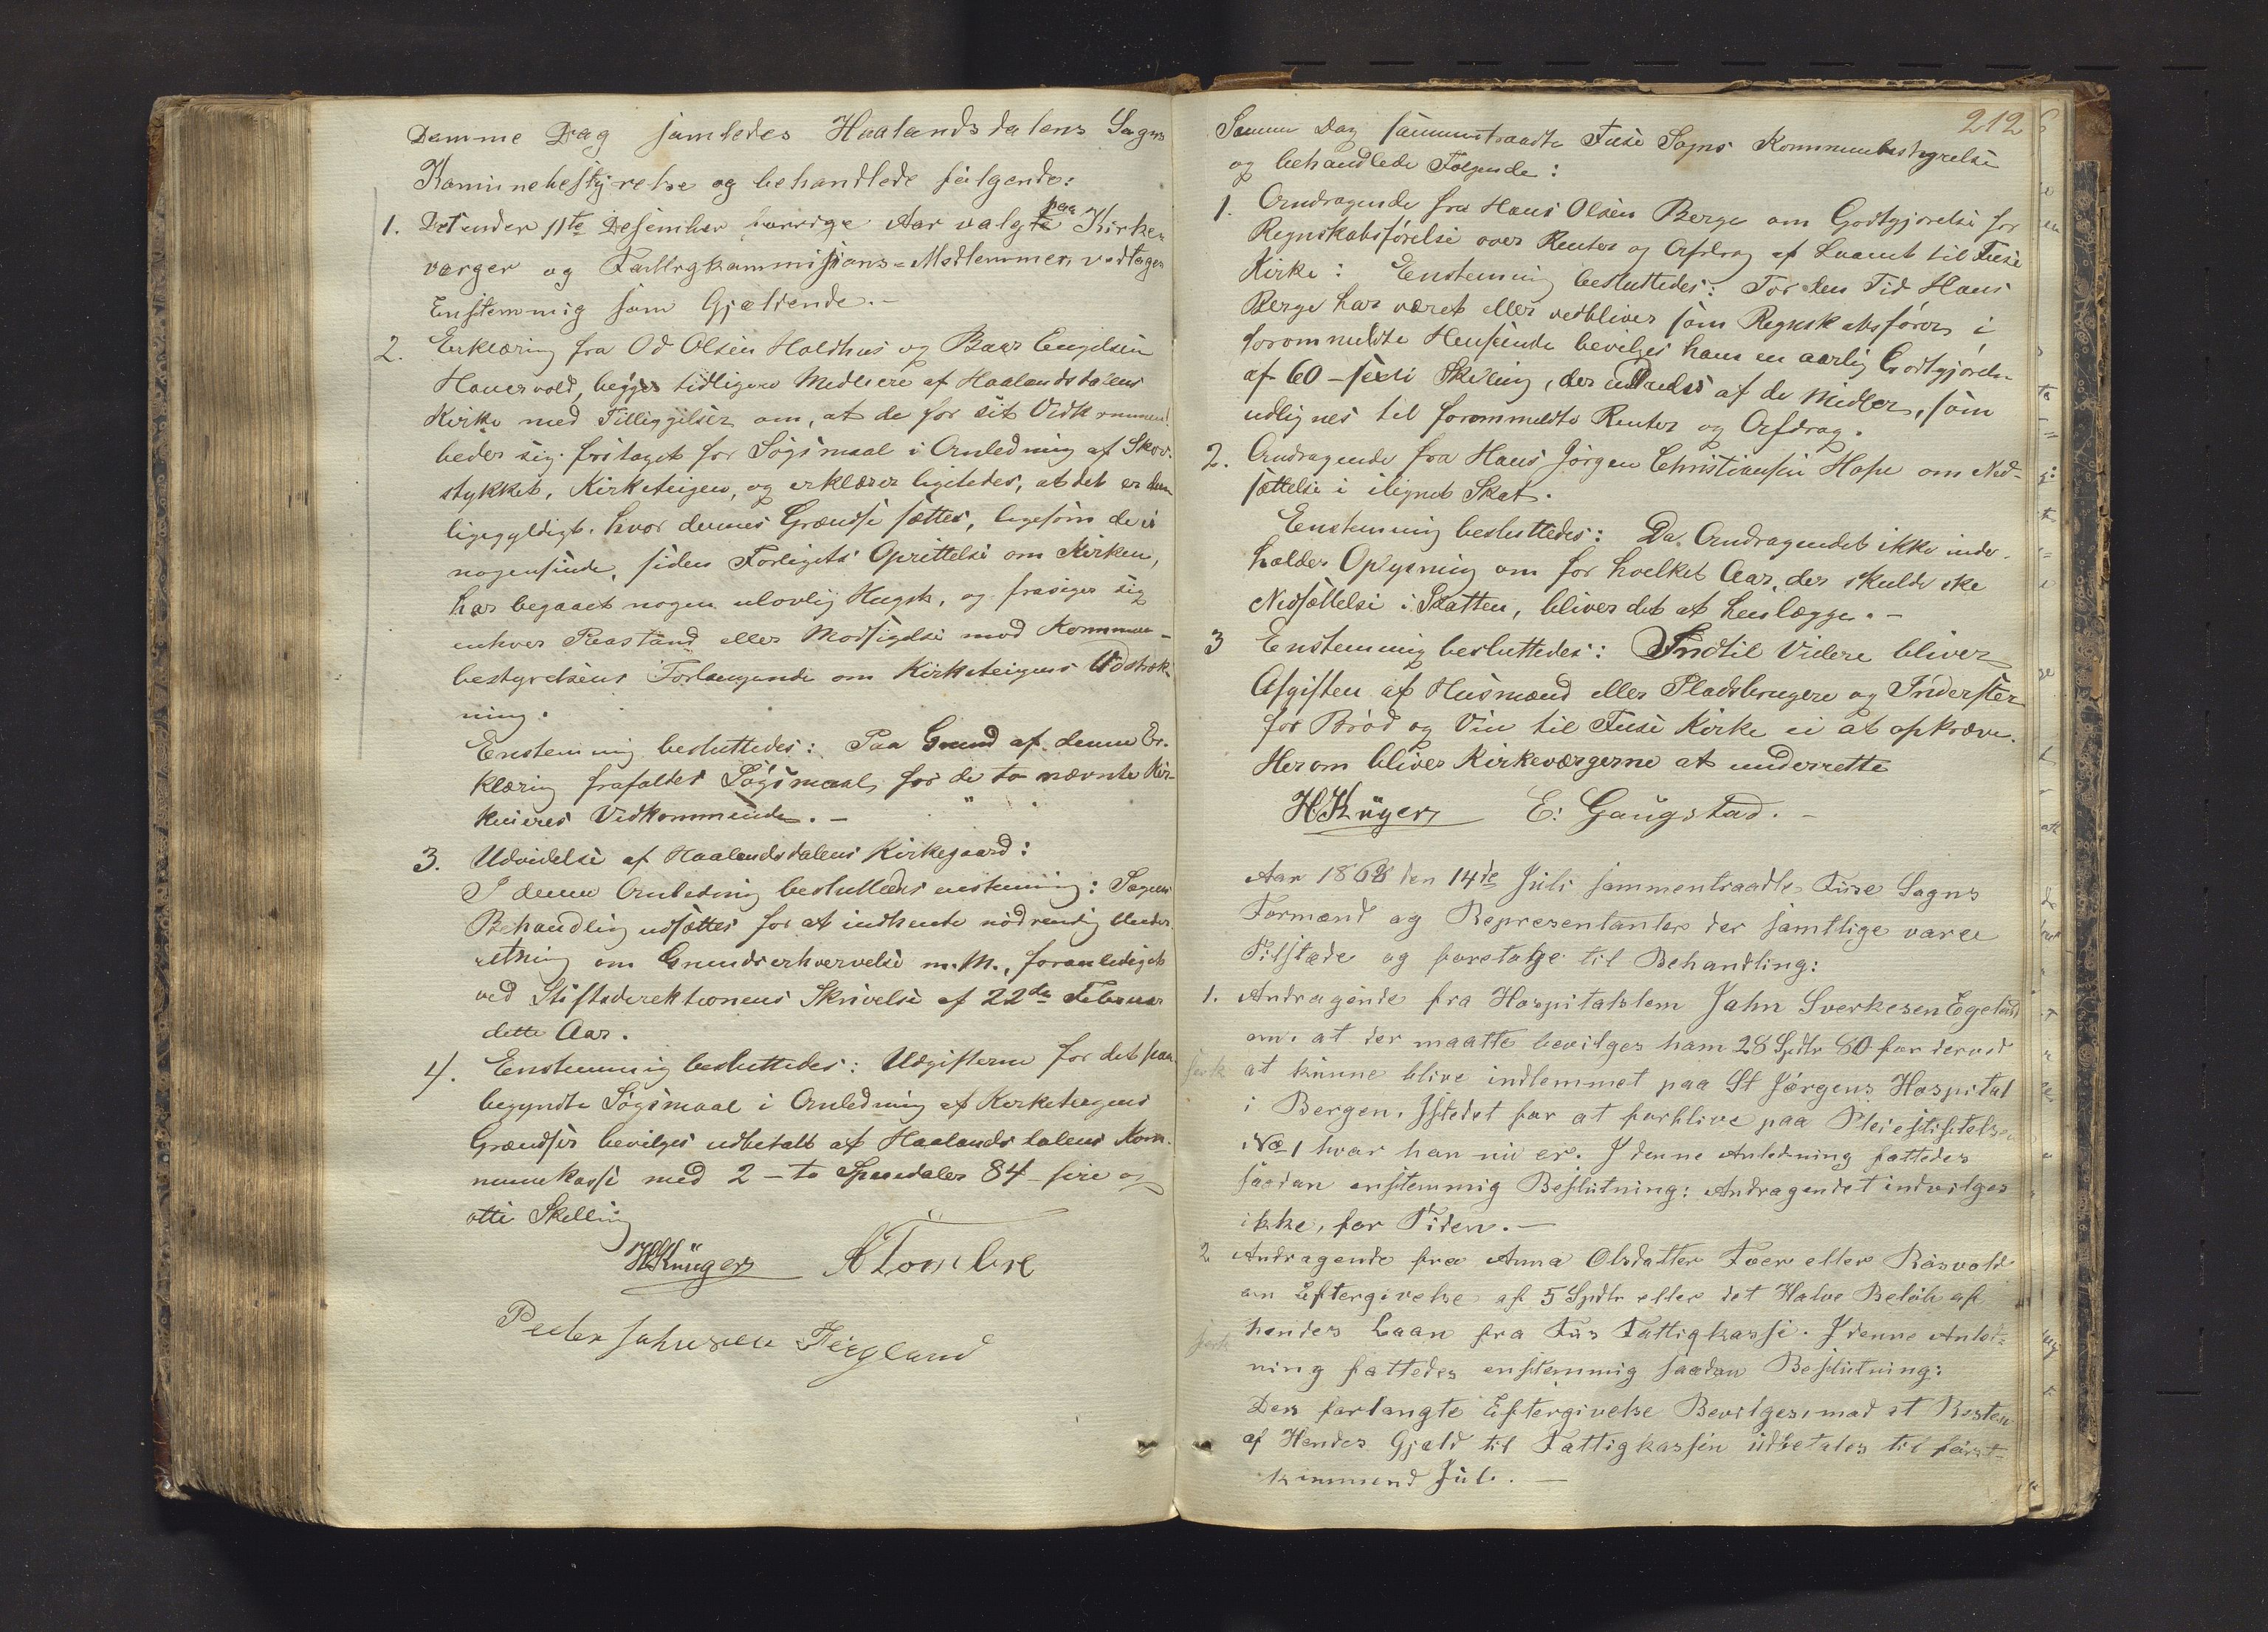 Samme Dag samledes Haalandsdalens Sogns
Kommunebestyrelse og behandlede følgende:
1. Det under 11te Desember forrige Aar valgte paa Kirke-
værger og Fattigkommisions-Medlemmer, vedtages
Enstemmig som Gjældende.-
2. Erklæring fra Od Olsen Holdhus og Baar Engelsen
Hauervold, begges tidligere Medeiere af Haalandsdalens
Kirke med Tilliggelser om, at de for sit Vedkommend.
beder sig fritaget for Søgsmaal i Anledning af Skov-
stykket, Kirketeigen, og erklærer ligeledes, at det er dem
ligegyldigt, hvor dennes Grændse sættes, ligesom de ei
nogensinde, siden Forligets Oprettelse om Kirken,
har begaaet nogen ulovlig Hugst, og frasiger sig
enhver Paastand eller Modsigelse mod Kommune-
bestyrelsens Forlangende om Kirketeigens Udstræk-
ning.
Enstemmig besluttedes: Paa Grund af denne Er-
klæring frafaldes Søgsmaal, for de to nævnte Kir-
keeieres Vedkommende.-
3. Udvidelse af Haalandsdalens Kirkegaard:
I denne Anledning besluttedes enstemmig: Sagens
Behandling udsættes for at indhente nødvendig Under-
retning om Grunderhvervelse m. M., foranlediget
ved Stiftsdirektionens Skrivelse af 22de Februar
dette Aar.
4. Enstemmig besluttedes: Udgifterne for det paa-
begyndte Søgsmaal i Anledning af Kirketeigens
Grændser bevilges udbetalt af Haalandsdalens Kom-
munekasse med 2 - to Speciedaler 84 - fire og
otti Skilling
H Krüger A Tombre
Peder Johnsen Teigland
212
Samme Dag sammentraadte Fuse Sogns Kommunebestyrelse
og behandlede Følgende:
1. Andragende fra Hans Olsen Berge om Godtgjørelse for
Regnskabsførelse over Renter og Afdrag af Laanet til Fuse
Kirke: Enstemmig besluttedes: For den Tid Hans
Berge har været eller vedbliver som Regnskabsfører i
forommeldte Henseende bevilges ham en aarlig Godtgjørelse
af 60 - sexti Skilling, der udredes af de Midler, som
udlignes til forommeldte Renter og Afdrag.
2. Andragende fra Hans Jørgen Christiansen Hope om Ned-
sættelse i ilignet Skat.
Enstemmig besluttedes: Da Andragendet ikke inde-
holder Oplysning om for hvilket Aar, der skulde ske
Nedsættelse i Skatten, bliver det at henlægge.-
3 Enstemmig besluttedes: Indtil Videre bliver
Afgiften af Husmænd eller Pladsbrugere og Inderster
for Brød og Vin til Fuse Kirke ei at opkræve.
Herom bliver Kirkeværgerne at underrette
H. Krüger E: Gaugstad.-
Aar 1868 den 14de Juli sammentraadte Fuse Sogns
Formænd og Representanter der samtlige vare
Tilstæde og foretoge til Behandling:
1. Andragende fra Hospitalslem John Sverkesen Egeland
om, at der maatte bevilges ham 28 Spdlr 80 for derved
at kunne blive indlemmet paa St Jørgens Hospital
i Bergen, Istedet for at forblive paa Pleiestiftelsen
No 1 hvor han nu er. I denne Anledning fattedes
saadan enstemmig Beslutning: Andragendet indvilges
ikke, for Tiden.-
2 Andragende fra Anna Olsdatter Toer eller Røsvold
om Eftergivelse af 5 Spdlr eller det Halve Beløb af
hendes Laan fra Fus Fattigkasse. I denne Anled-
ning fattedes enstemmig saadan Beslutning:
Den forlangte Eftergivelse Bevilges, mod at Resten
af Hendes Gjæld til Fattigkassen udbetales til først-
kommend Jul.-